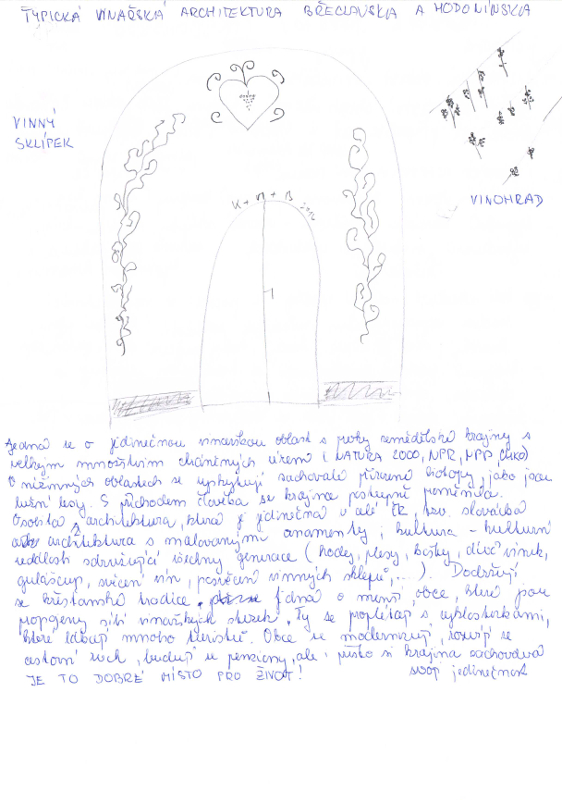 TYPICKÁ VINAŘSKÁ ARCHITEKTURA BŘECLAVSKA A HODONÍNSKA
VINNÝ
SKLÍPEK
K + M + B
VINOHRAD
Jedná se o jedinečnou vinařskou oblast s prvky zemědělské krajiny s
velkým množstvím chráněných území (NATURA 2000, NPR, NPP, CHKO)
V nížinných oblastech se vyskytují zachovalé přirozené biotopy, jako jsou
lužní lesy. S příchodem člověka se krajina postupně poměnila.
Osobitá architektura, která je jedinečná v celé ČR, tzv. slovácká
architektura s malovanými ornamenty i kultura - kulturní
události sdružující všechny generace (hody, plesy, košty, dívčí vínek,
gulášcup, svěcení vín, posvěcení vinných sklepů, ...). Dodržují
se křesťanské tradice. Jedná o menší obce, které jsou
propojeny sítí vinařských stezek. Ty se proplétají s cyklostezkami,
které lákají mnoho turistů. Obce se modernizují, rozvíjí se
cestovní ruch, budují se penziony, ale i přesto si krajina zachovává
JE TO DOBRÉ MÍSTO PRO ŽIVOT! svoji jedinečnost